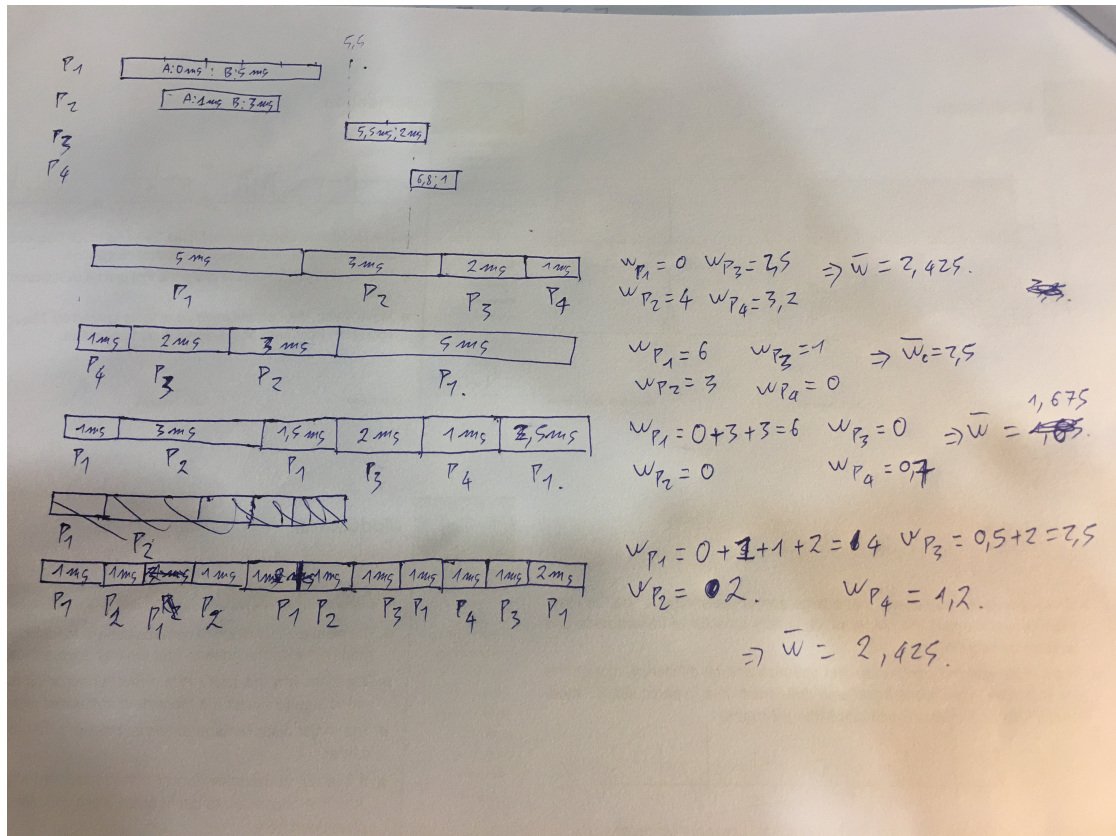 5,5
P1 A:0ms ; B:5ms
P2 A:1ms B:3ms
P3 5,5ms; 2ms
P4 6,8; 1
5ms 3ms 2ms 1ms
P1 P2 P3 P4
wP1 = 0 wP3 = 2,5 => w̄ = 2,425.
wP2 = 4 wP4 = 3,2
1ms 2ms 3ms 5ms
P4 P3 P2 P1.
wP1 = 6 wP3 = 1 => w̄c = 2,5
wP2 = 3 wP4 = 0
1ms 3ms 1,5ms 2ms 1ms 2,5ms
P1 P2 P1 P3 P4 P1.
wP1 = 0+3+3 = 6 wP3 = 0 => w̄ = 1,675
wP2 = 0 wP4 = 0,7
P1 P2
1ms 1ms 1ms 1ms 1ms 1ms 1ms 1ms 1ms 2ms
P1 P2 P1 P2 P1 P2 P3 P1 P4 P3 P1
wP1 = 0+1+1+2 = 4 wP3 = 0,5+2 = 2,5
wP2 = 2. wP4 = 1,2.
=> w̄ = 2,425.